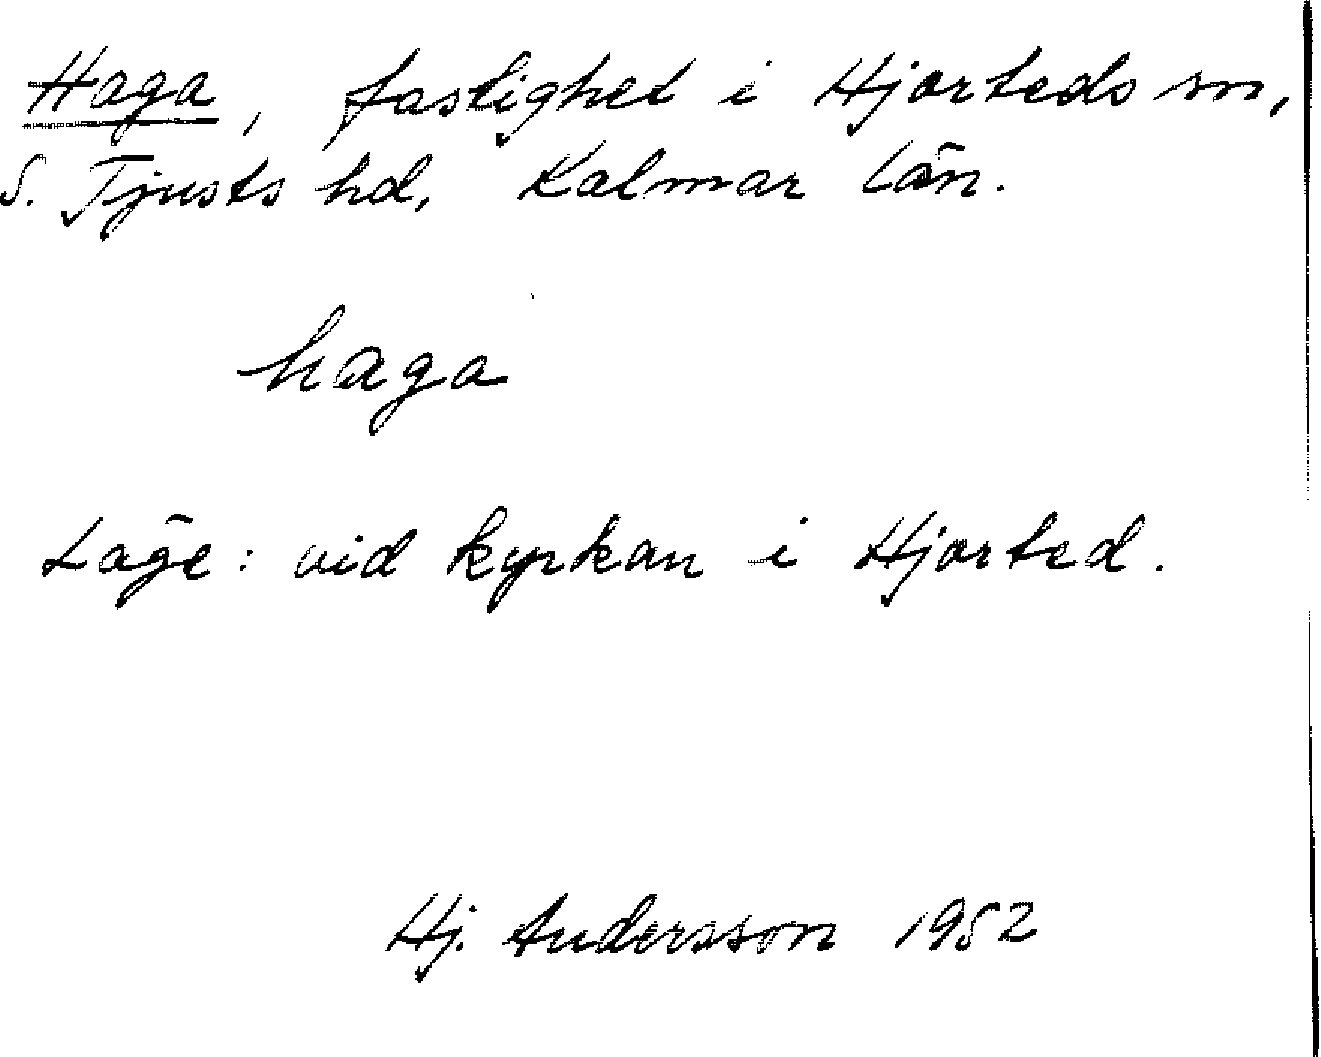 Haga, fastighet i Hjorteds sn,
S. Tjusts hd, Kalmar län.
haga
Läge: vid kyrkan i Hjorted.
Hj. Andersson 1952